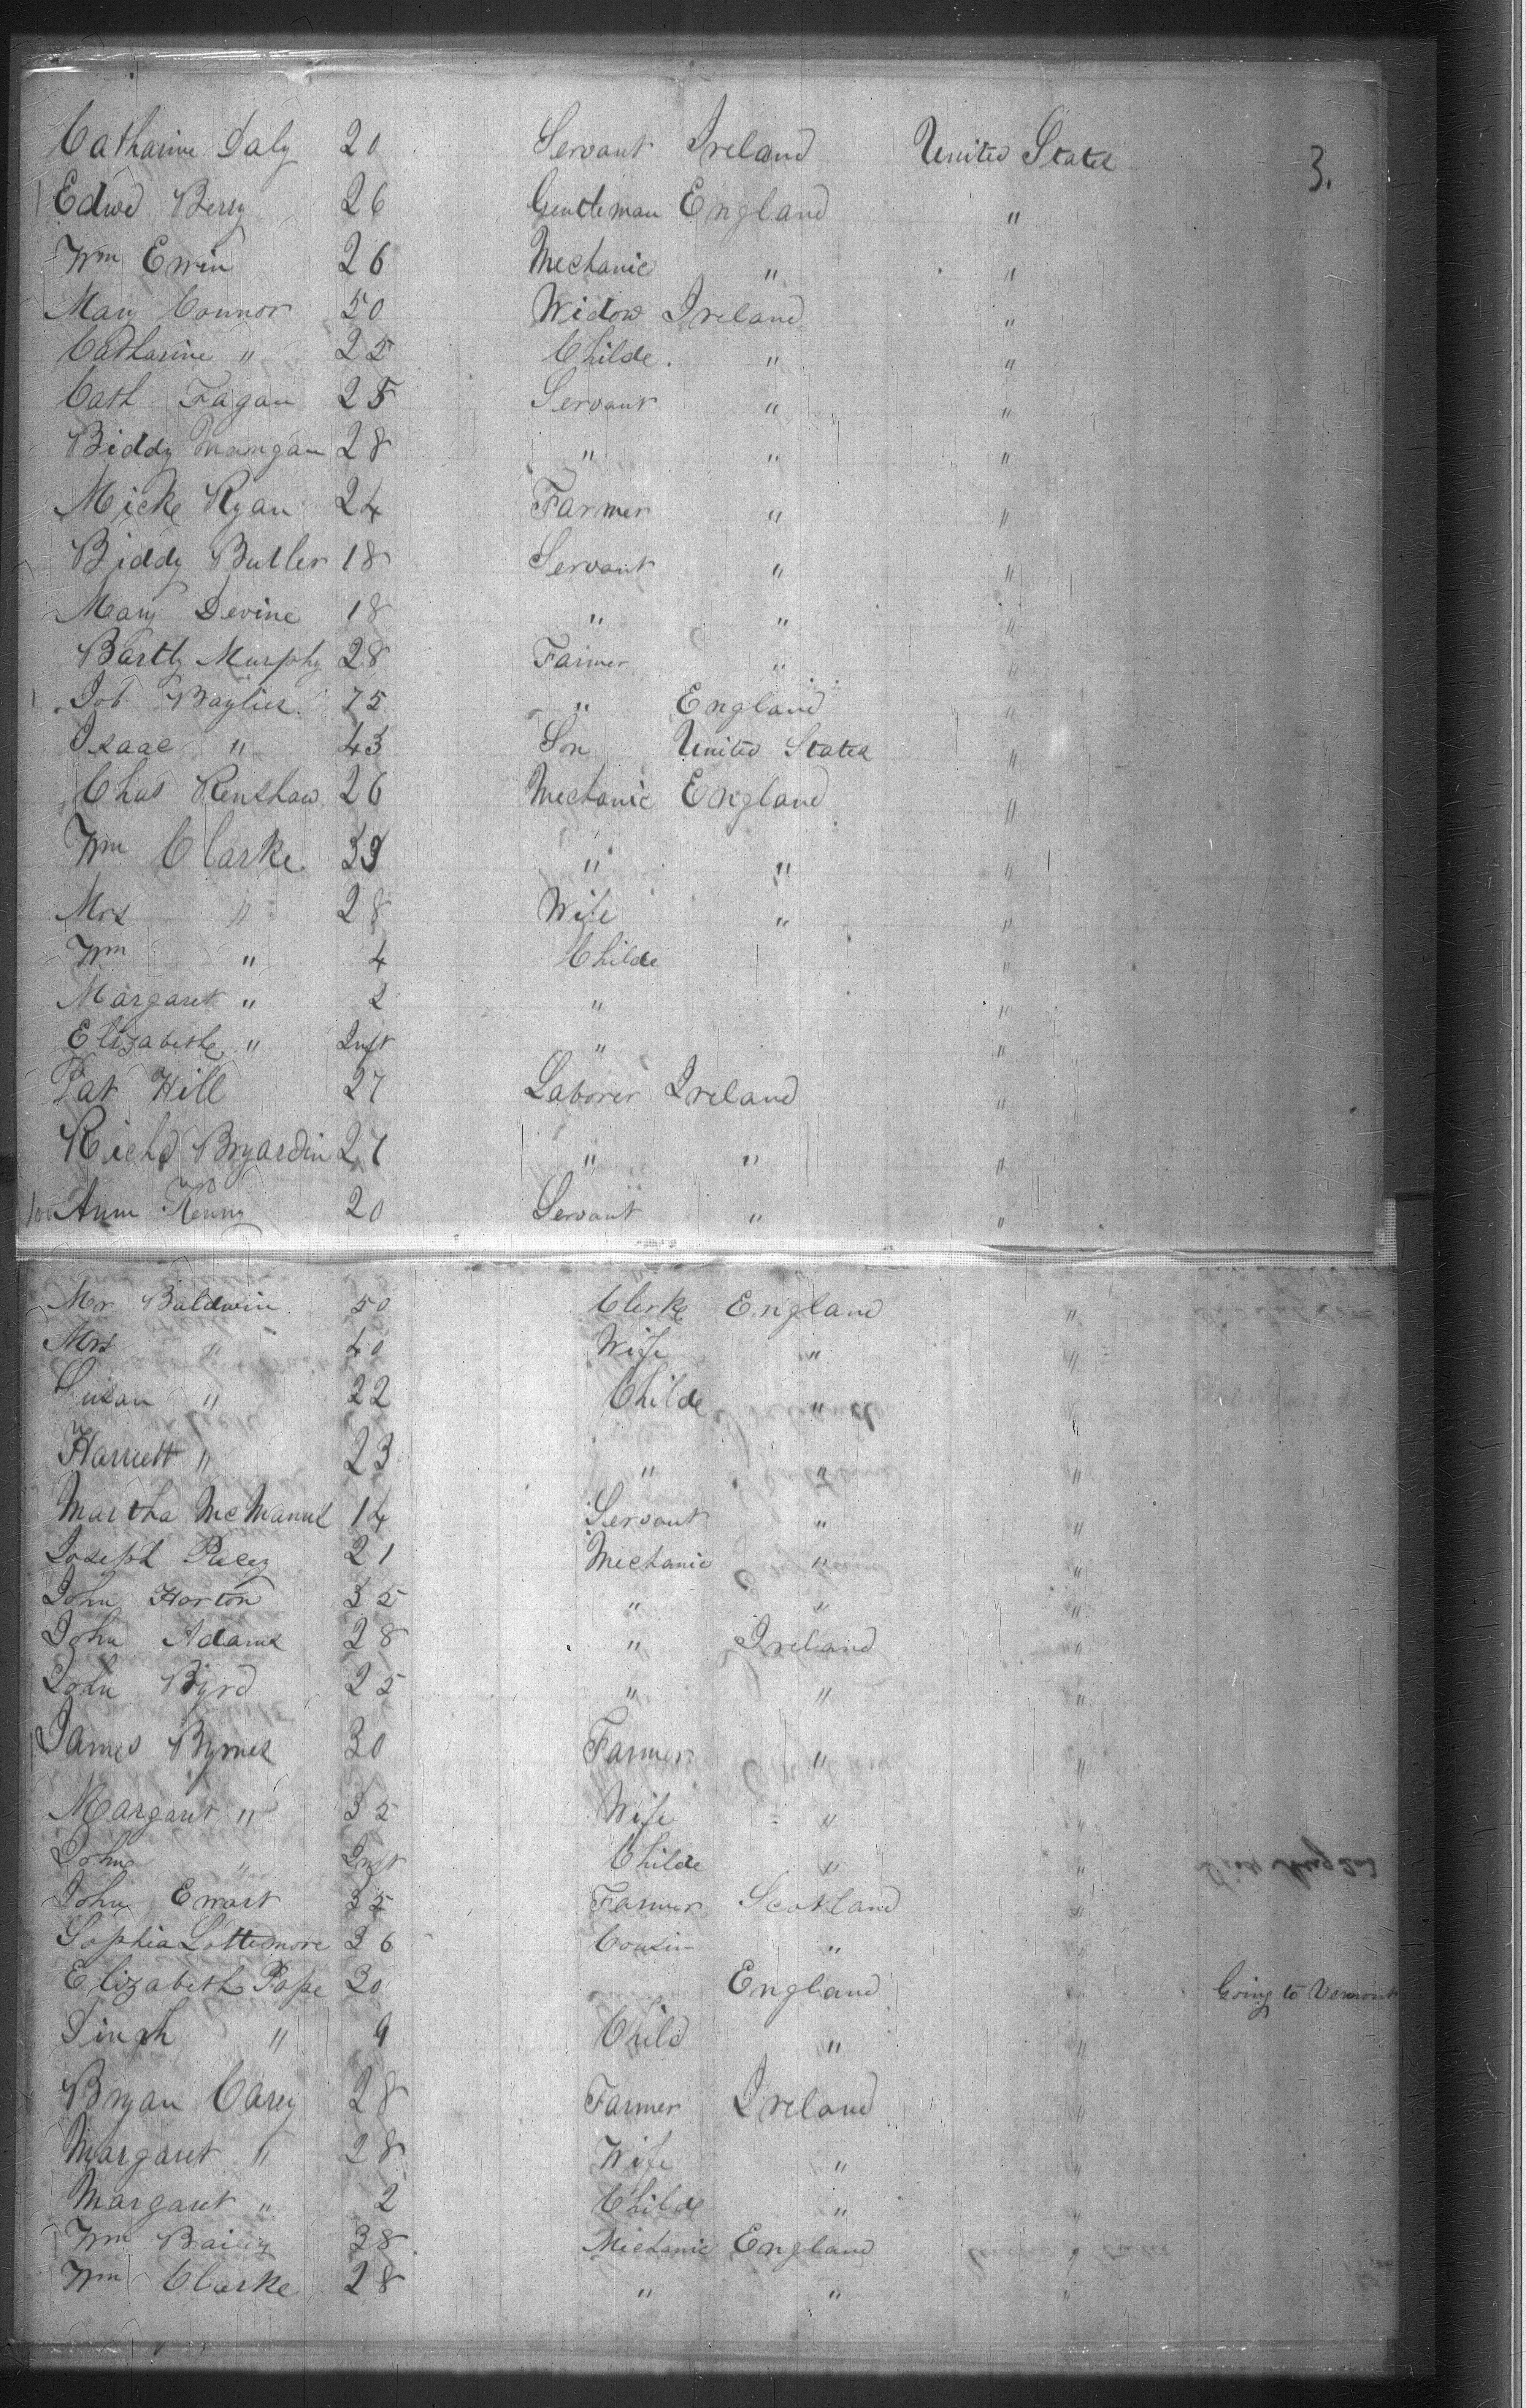 3.
Catharine Daly 20 Servant Ireland United States
Edwd Berry 26 Gentleman England "
Wm Erwin 26 Mechanic " "
Mary Connor 50 Widow Ireland "
Catharine " 22 Childe. " "
Cath Fagan 25 Servant " "
Biddy Mangan 28 " " "
Micke Ryan 24 Farmer " "
Biddy Butler 18 Servant " "
Mary Devine 18 " " "
Bartly Murphy 28 Farmer " "
Job Baylies 75 " England "
Isaac " 43 Son United States "
Chas Renshaw 26 Mechanic England "
Wm Clarke 39 " " "
Mrs " 28 Wife " "
Wm " 4 Childe "
Margaret " 2 " "
Elizabeth " Inft " "
Pat Hill 27 Laborer Ireland "
Richd 27 " " "
Ann Kenny 20 Servant " "
Mr Baldwin 50 Clerke England "
Mrs " 40 Wife " "
Susan " 22 Childe " "
Harriett " 23 " " "
Martha McManus 14 Servant " "
Joseph 21 Mechanic " "
John Horton 35 " " "
John Adams 28 " Ireland "
John Byrd 25 " " "
James Byrnes 30 Farmer " "
Margaret " 35 Wife " "
John " Inft Childe " "
John Ewart 35 Farmer Scotland "
Sophia 36 Cousin " "
Elizabeth Pope 30 England " Going to Vermont
" 9 Child " "
Bryan Carey 28 Farmer Ireland "
Margaret " 28 Wife " "
Margaret " 2 Childe " "
Wm Bailey 38 Mechanic England United States
Wm Clarke 28 " " "